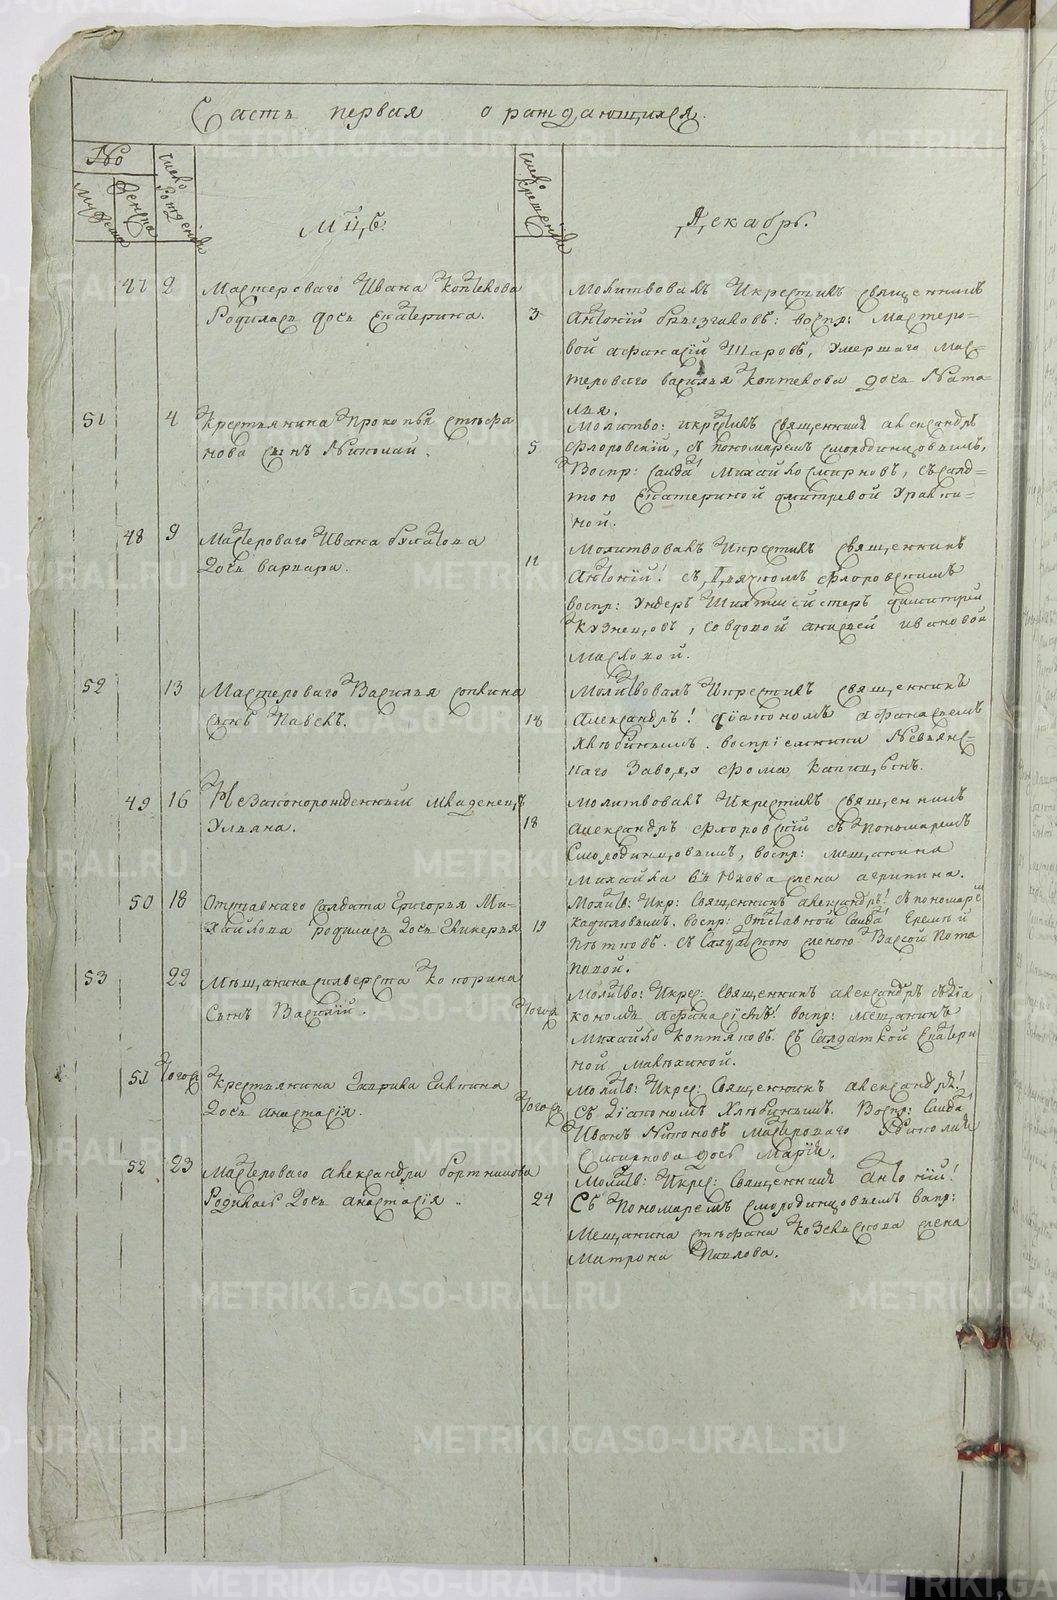 Часть первая о раждающихся.
No
Мужеска
Женска
число рождения
Мц҃ъ:
число крещения
Декабрь.
47 2 Мастероваго Ивана Коптекова
Родилась дочь Екатерина.
3
Молитвовалъ Икрестилъ священникъ
Антоній воспр: Мастеро=
вой афанасій Шаровъ, умершаго Мас=
тероваго василья Коптекова дочь Ната=
лья.
51 4 Крестьянина Прокопья стефа
нова сынъ Николай.
5
Молитво: икрестилъ священникъ александръ
Флоровскій, съ пономаремъ смородинцовымъ,
Воспр: салда Михайло смирновъ, съ салд=
тою Екатериной дмитревой
ной.
48 9 Мастероваго Ивана булатова
Дочь варвара.
11
Молитвовалъ Икрестилъ священникъ
Антоній! съ Дьячкомъ Флоровскимъ
воспр: Ундеръ Шихтмейстеръ димитрей
Кузнецовъ, совдовой анисьей ивановой
Масловой.
52 13 Мастероваго Василья сопкина
сынъ Павелъ.
18
Молитвовалъ Икрестилъ священникъ
Александръ! діакономъ афанасьемъ
Хлѣбинымъ. воспріемники Невьянс=
каго Завода фома
49 16 Незаконорожденный младенецъ
Ульяна.
18
Молитвовалъ Икрестилъ священникъ
Александръ флоровскій съ Пономаремъ
Смородинцовымъ, воспр: мещанина
Михайла жена агрипина.
50 18 Отставнаго салдата Григорья Ми=
хайлова родилась Дочь Гликерья
19
Молитв: Икр: Священникъ александръ! съ пономаре
Кадиловымъ. воспр: Отставной салда Еремѣй
Пѣтновъ. съ Салдатскою женою Вассой Пота
повой.
53 22 Мѣщанина силверста Копорина
Сынъ Василій.
Тогож
Молитво: Икрес: священникъ александръ съдіа
кономъ афанасіемъ! воспр: мещанинъ
Михайло Коптяковъ. съ Салдаткой Екатери
ной
51 Тогож Крестьянина Гаврила
Дочь анастасія.
Тогож
Молитв: Икрес: Священникъ александръ!
Съ Діакономъ Хлѣбинымъ. Воспр: салда
Иванъ Никоновъ мастероваго Николая
Смирнова дочь Марія.
52 23 Мастероваго александра бортникова
Родилась Дочь анастасія..
24
Молитв: Икрес: Священникъ Антоній!
Съ Пономаремъ смородинцовымъ вапр:
мещанина стефана Козельскова жена
Матрона Павлова.
METRIKI.GASO-URAL.RU